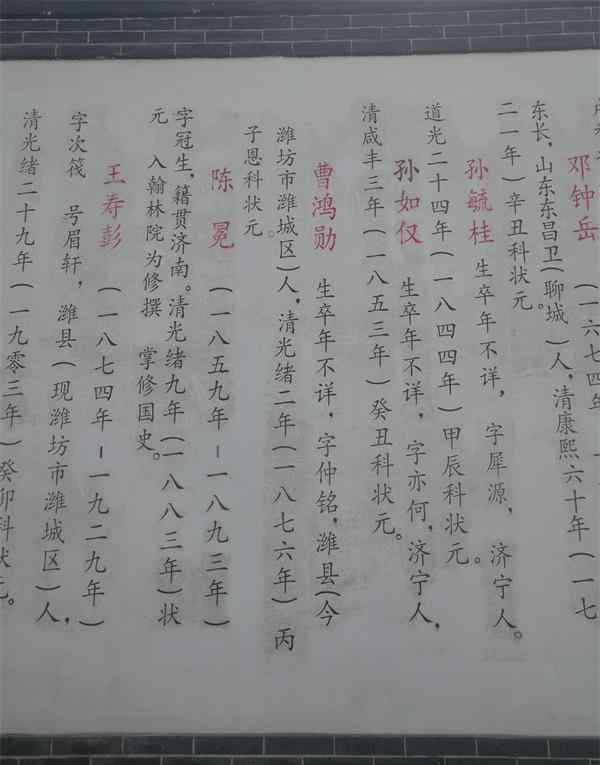 邓钟岳 (一六七四年
东长，山东东昌卫(聊城 )人，清康熙六十年(一七
二一年)辛丑科状元。
孙毓桂 生卒年不详， 字犀源，济宁人。
道光二十四年(一八四四年)甲辰科状元。
孙如仅 生卒年不详，字亦何，济宁人，
清咸丰三年(一八五三年)癸丑科状元。
曹鸿勋 生卒年不详，字仲铭，潍县(今
潍坊市潍城区)人，清光绪二年(一八七六年)丙
子恩科状元。
陈 冕 (一八五九年-一八九三年)
字冠生，籍贯济南。清光绪九年(一八八三年)状
元 入翰林院为修撰 掌修国史。
王寿彭 (一八七四年-一九二九年)
字次筏 号眉轩，潍县(现潍坊市潍城区)人，
清光绪二十九年(一九零三年)癸卯科状元。